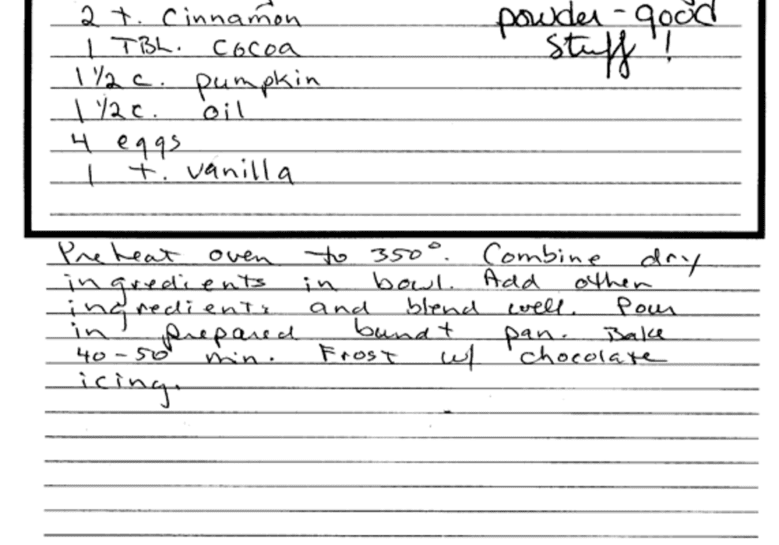 2 t. cinnamon
powder - good
1 TBL. cocoa
stuff!
1 1/2 c. pumpkin
1 1/2 c. oil
4 eggs
1 t. vanilla
Preheat oven to 350°. Combine dry
ingredients in bowl. Add other
ingredients and blend well. Pour
in prepared bundt pan. Bake
40-50 min. Frost w/ chocolate
icing.